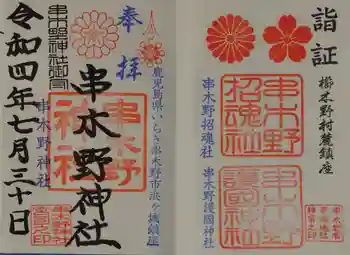 詣証
櫛木野村麓鎮座
串木野招魂社
串木野
招魂社
串木野護國神社
串木野
護國神社
奉拝
鹿児島県いちき串木野市浜ヶ城鎮座
串木野神社
串木野
神社
串木野神社
令和四年七月三十日